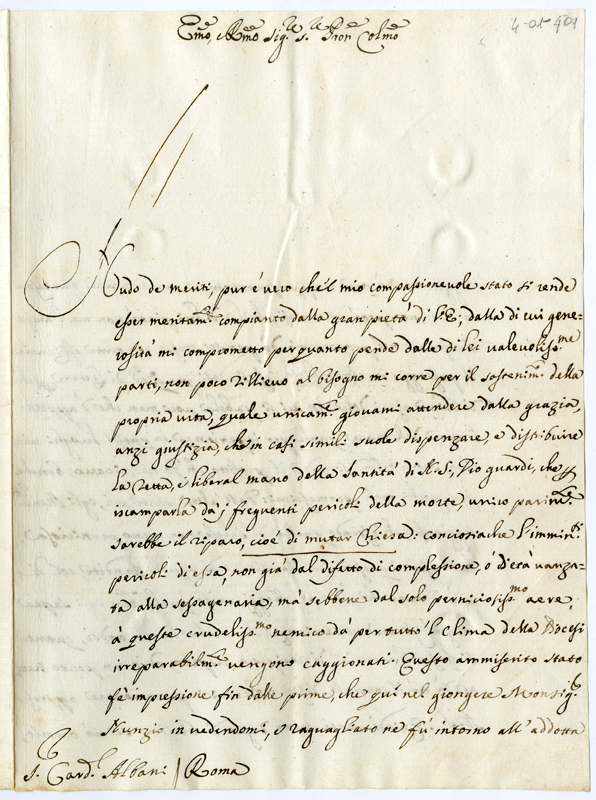 4-01-401
Em̃o, Rm̃o Sig.r S.r Pron Colmo
Nudo de meriti, pur é vero ché'l mio compassionevole stato si rende
esser meritam.te compianto dalla gran pietà di V.E.; dalla di cui gene-
rosità mi comprometto per quanto pende dalle di lei valevoliss.me
parti, non poco rillievo al bisogno mi corre per il sostenim.to della
propria vita, quale unicam.te giovami attendere dalla grazia,
anzi giustizia, che in casi simili suole dispenzare, e distribuire
la retta, e liberal mano della Santità di N.S., Dio guardi, che p
iscamparla da j frequenti pericoli della morte, unico parim.te
sarebbe il riparo, cioé di mutar Chiesa: conciosiache l'immin.ti
pericoli di essa, non già dal difetto di complessione, ó d'età vanza-
ta alla sessagenaria, mà sebbene dal solo perniciosiss.mo aere,
à queste crudeliss.mo nemico dà per tutto'l clima della Diocesi
irreparabilm.te vengono caggionati. Questo ammiserito stato
fè impressione fin dalle prime, che quì nel giongere Monsig.r
Nunzio in vedendomi, e raguagliato ne fù intorno all'addotta
S. Card.l Albani / Roma